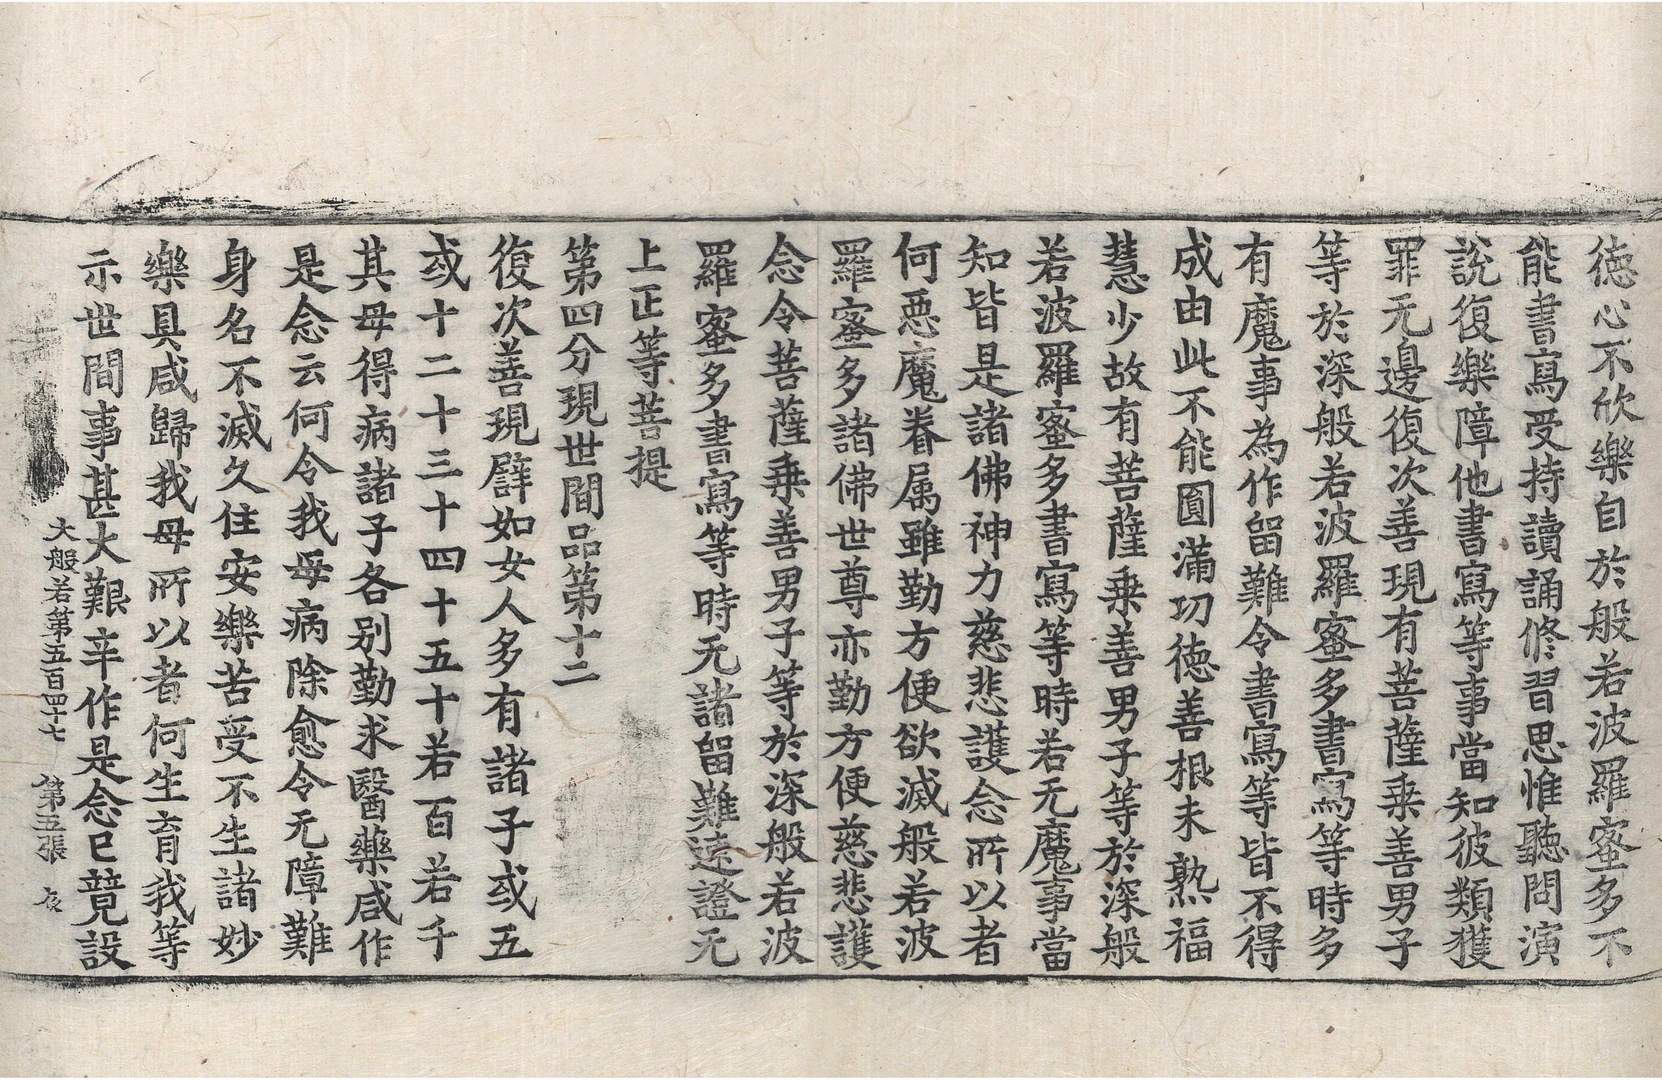 德心不欣樂自於般若波羅蜜多不
能書寫受持讀誦修習思惟聽問演
說復樂障他書寫等事當知彼類獲
罪无邊復次善現有菩薩乗善男子
等於深般若波羅蜜多書寫等時多
有魔事為作留難令書寫等皆不得
成由此不能圓滿功德善根未熟福
慧少故有菩薩乗善男子等於深般
若波羅蜜多書寫等時若无魔事當
知皆是諸佛神力慈悲護念所以者
何惡魔眷属雖勤方便欲滅般若波
羅蜜多諸佛世尊亦勤方便慈悲護
念令菩薩乗善男子等於深般若波
羅蜜多書寫等時无諸留難速證无
上正等菩提
第四分現世間品第十二
復次善現譬如女人多有諸子或五
或十二十三十四十五十若百若千
其母得病諸子各别勤求醫藥咸作
是念云何令我母病除愈令无障難
身名不滅久住安樂苦受不生諸妙
樂具咸歸我母所以者何生育我等
示世間事甚大艱辛作是念已競設
大般若第五百四十七 第五張